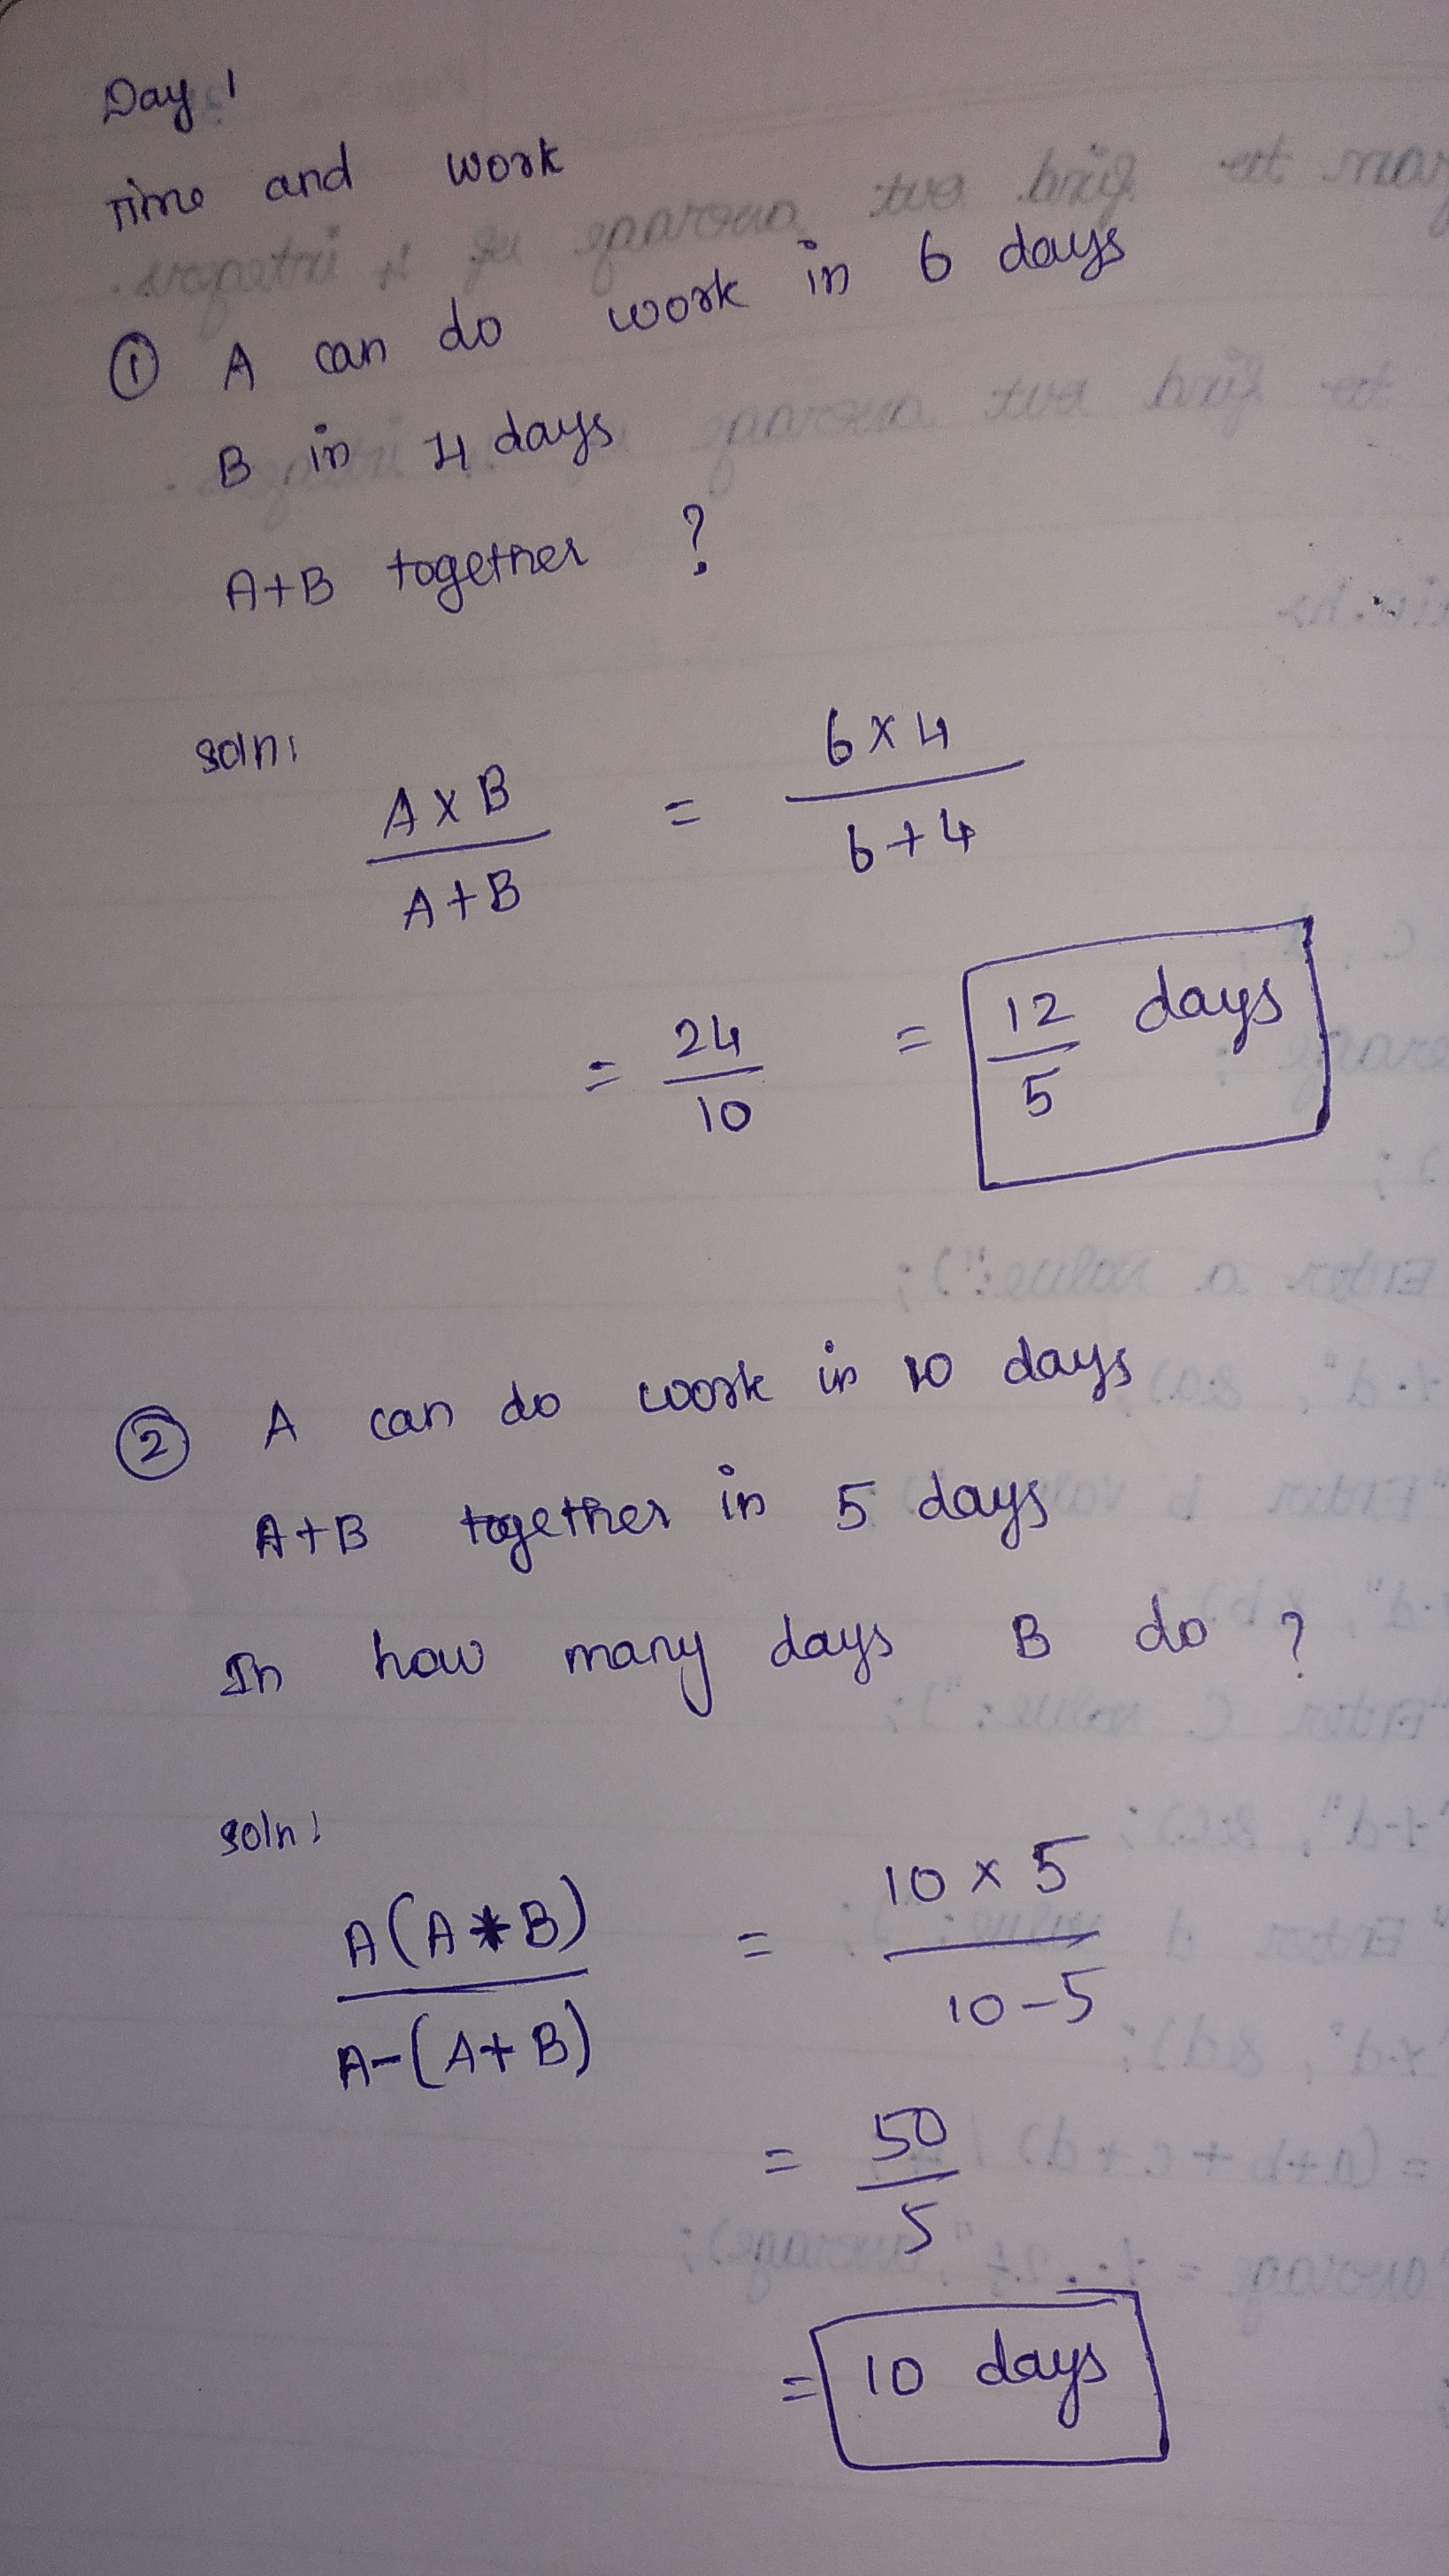 Day 1
Time and work
① A can do work in 6 days
B in 4 days
A+B together ?
soln:
A x B / A + B = 6 x 4 / 6 + 4
= 24 / 10 = 12 / 5 days
② A can do work in 10 days
A+B together in 5 days
In how many days B do ?
soln:
A(A*B) / A-(A+B) = 10 x 5 / 10-5
= 50 / 5
= 10 days